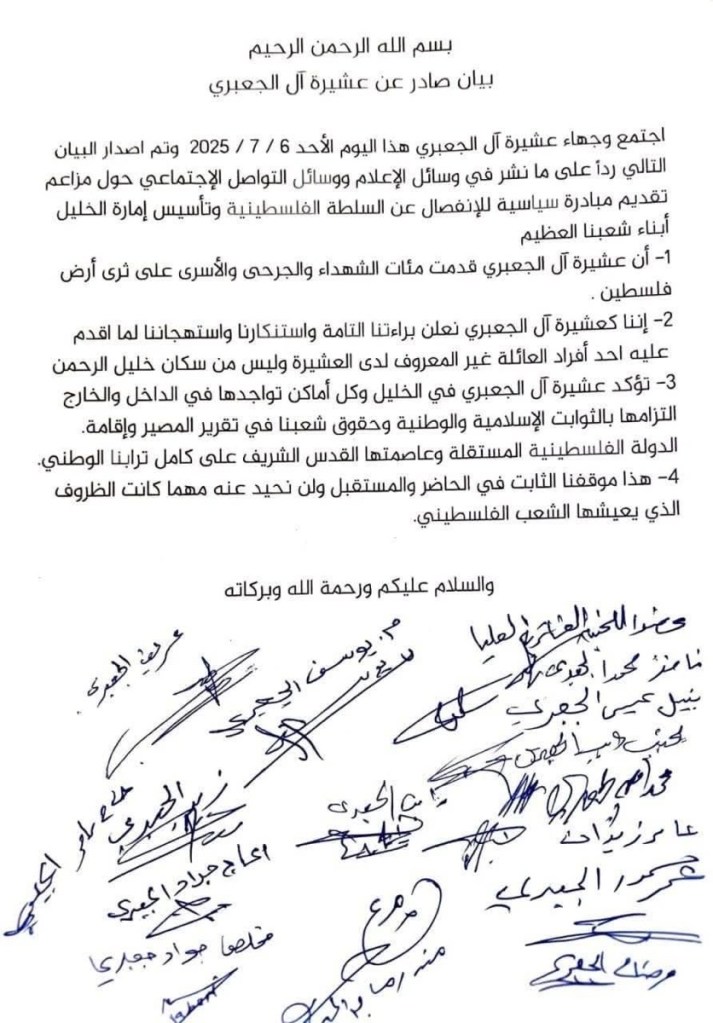 بسم الله الرحمن الرحيم
بيان صادر عن عشيرة آل الجعبري
اجتمع وجهاء عشيرة آل الجعبري هذا اليوم الأحد 6 / 7 / 2025 وتم اصدار البيان
التالي رداً على ما نشر في وسائل الإعلام ووسائل التواصل الإجتماعي حول مزاعم
تقديم مبادرة سياسية للإنفصال عن السلطة الفلسطينية وتأسيس إمارة الخليل
أبناء شعبنا العظيم
1- أن عشيرة آل الجعبري قدمت مئات الشهداء والجرحى والأسرى على ثرى أرض
فلسطين .
2- إننا كعشيرة آل الجعبري نعلن براءتنا التامة واستنكارنا واستهجاننا لما اقدم
عليه احد أفراد العائلة غير المعروف لدى العشيرة وليس من سكان خليل الرحمن
3- تؤكد عشيرة آل الجعبري في الخليل وكل أماكن تواجدها في الداخل والخارج
التزامها بالثوابت الإسلامية والوطنية وحقوق شعبنا في تقرير المصير وإقامة.
الدولة الفلسطينية المستقلة وعاصمتها القدس الشريف على كامل ترابنا الوطني.
4- هذا موقفنا الثابت في الحاضر والمستقبل ولن نحيد عنه مهما كانت الظروف
الذي يعيشها الشعب الفلسطيني.
والسلام عليكم ورحمة الله وبركاته
العليا
يوسف الجعبري
نبيل عيسى الجعبري
الجعبري
الحاج جواد الجعبري
الجعبري
جواد جعبري
الجعبري